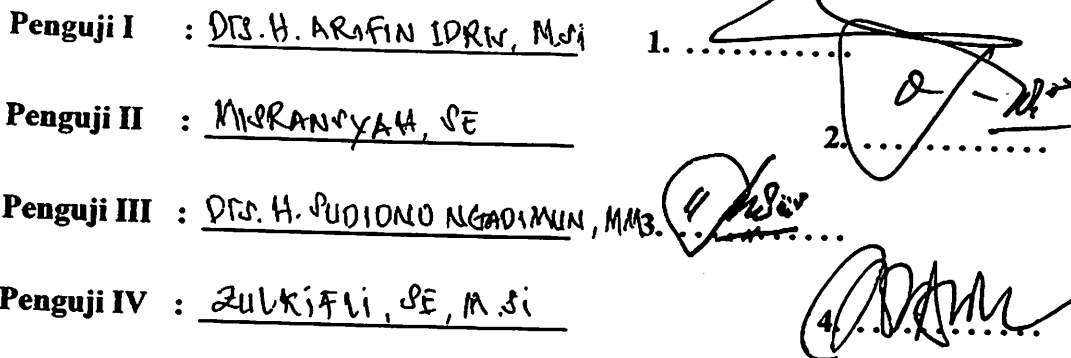 Penguji I : DRS. H. ARIFIN IDRIS, MSi 1. ............
Penguji II : MISRANSYAH, SE 2. ............
Penguji III : DRS. H. SUDIONO NGADIMUN, MM 3. ............
Penguji IV : ZULKIFLI, SE, M.Si 4. ............